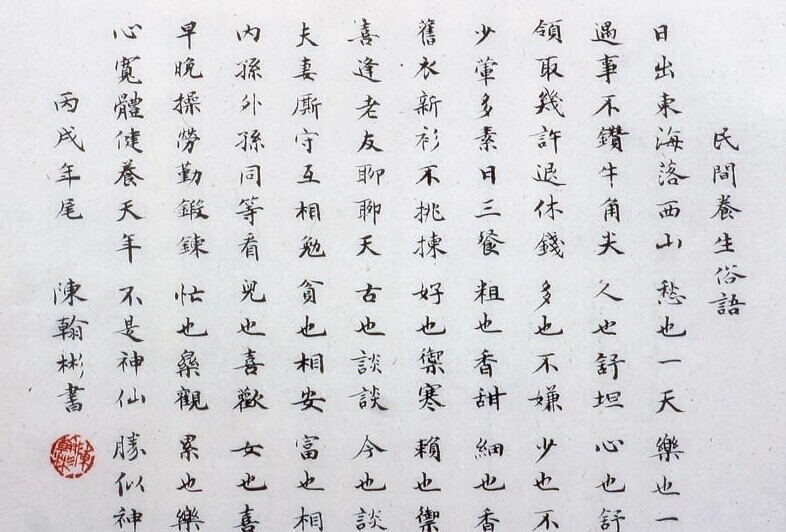 民間養生俗語
日出東海落西山 愁也一天 樂也一
遇事不鑽牛角尖 人也舒坦 心也舒
領取幾許退休錢 多也不嫌 少也不
少葷多素日三餐 粗也香甜 細也香
舊衣新衫不挑揀 好也禦寒 賴也禦
喜逢老友聊聊天 古也談談 今也談
夫妻廝守互相勉 貧也相安 富也相
內孫外孫同等看 兒也喜歡 女也喜
早晚操勞勤鍛鍊 忙也樂觀 累也樂
心寬體健養天年 不是神仙 勝似神
丙戌年尾 陳翰彬書